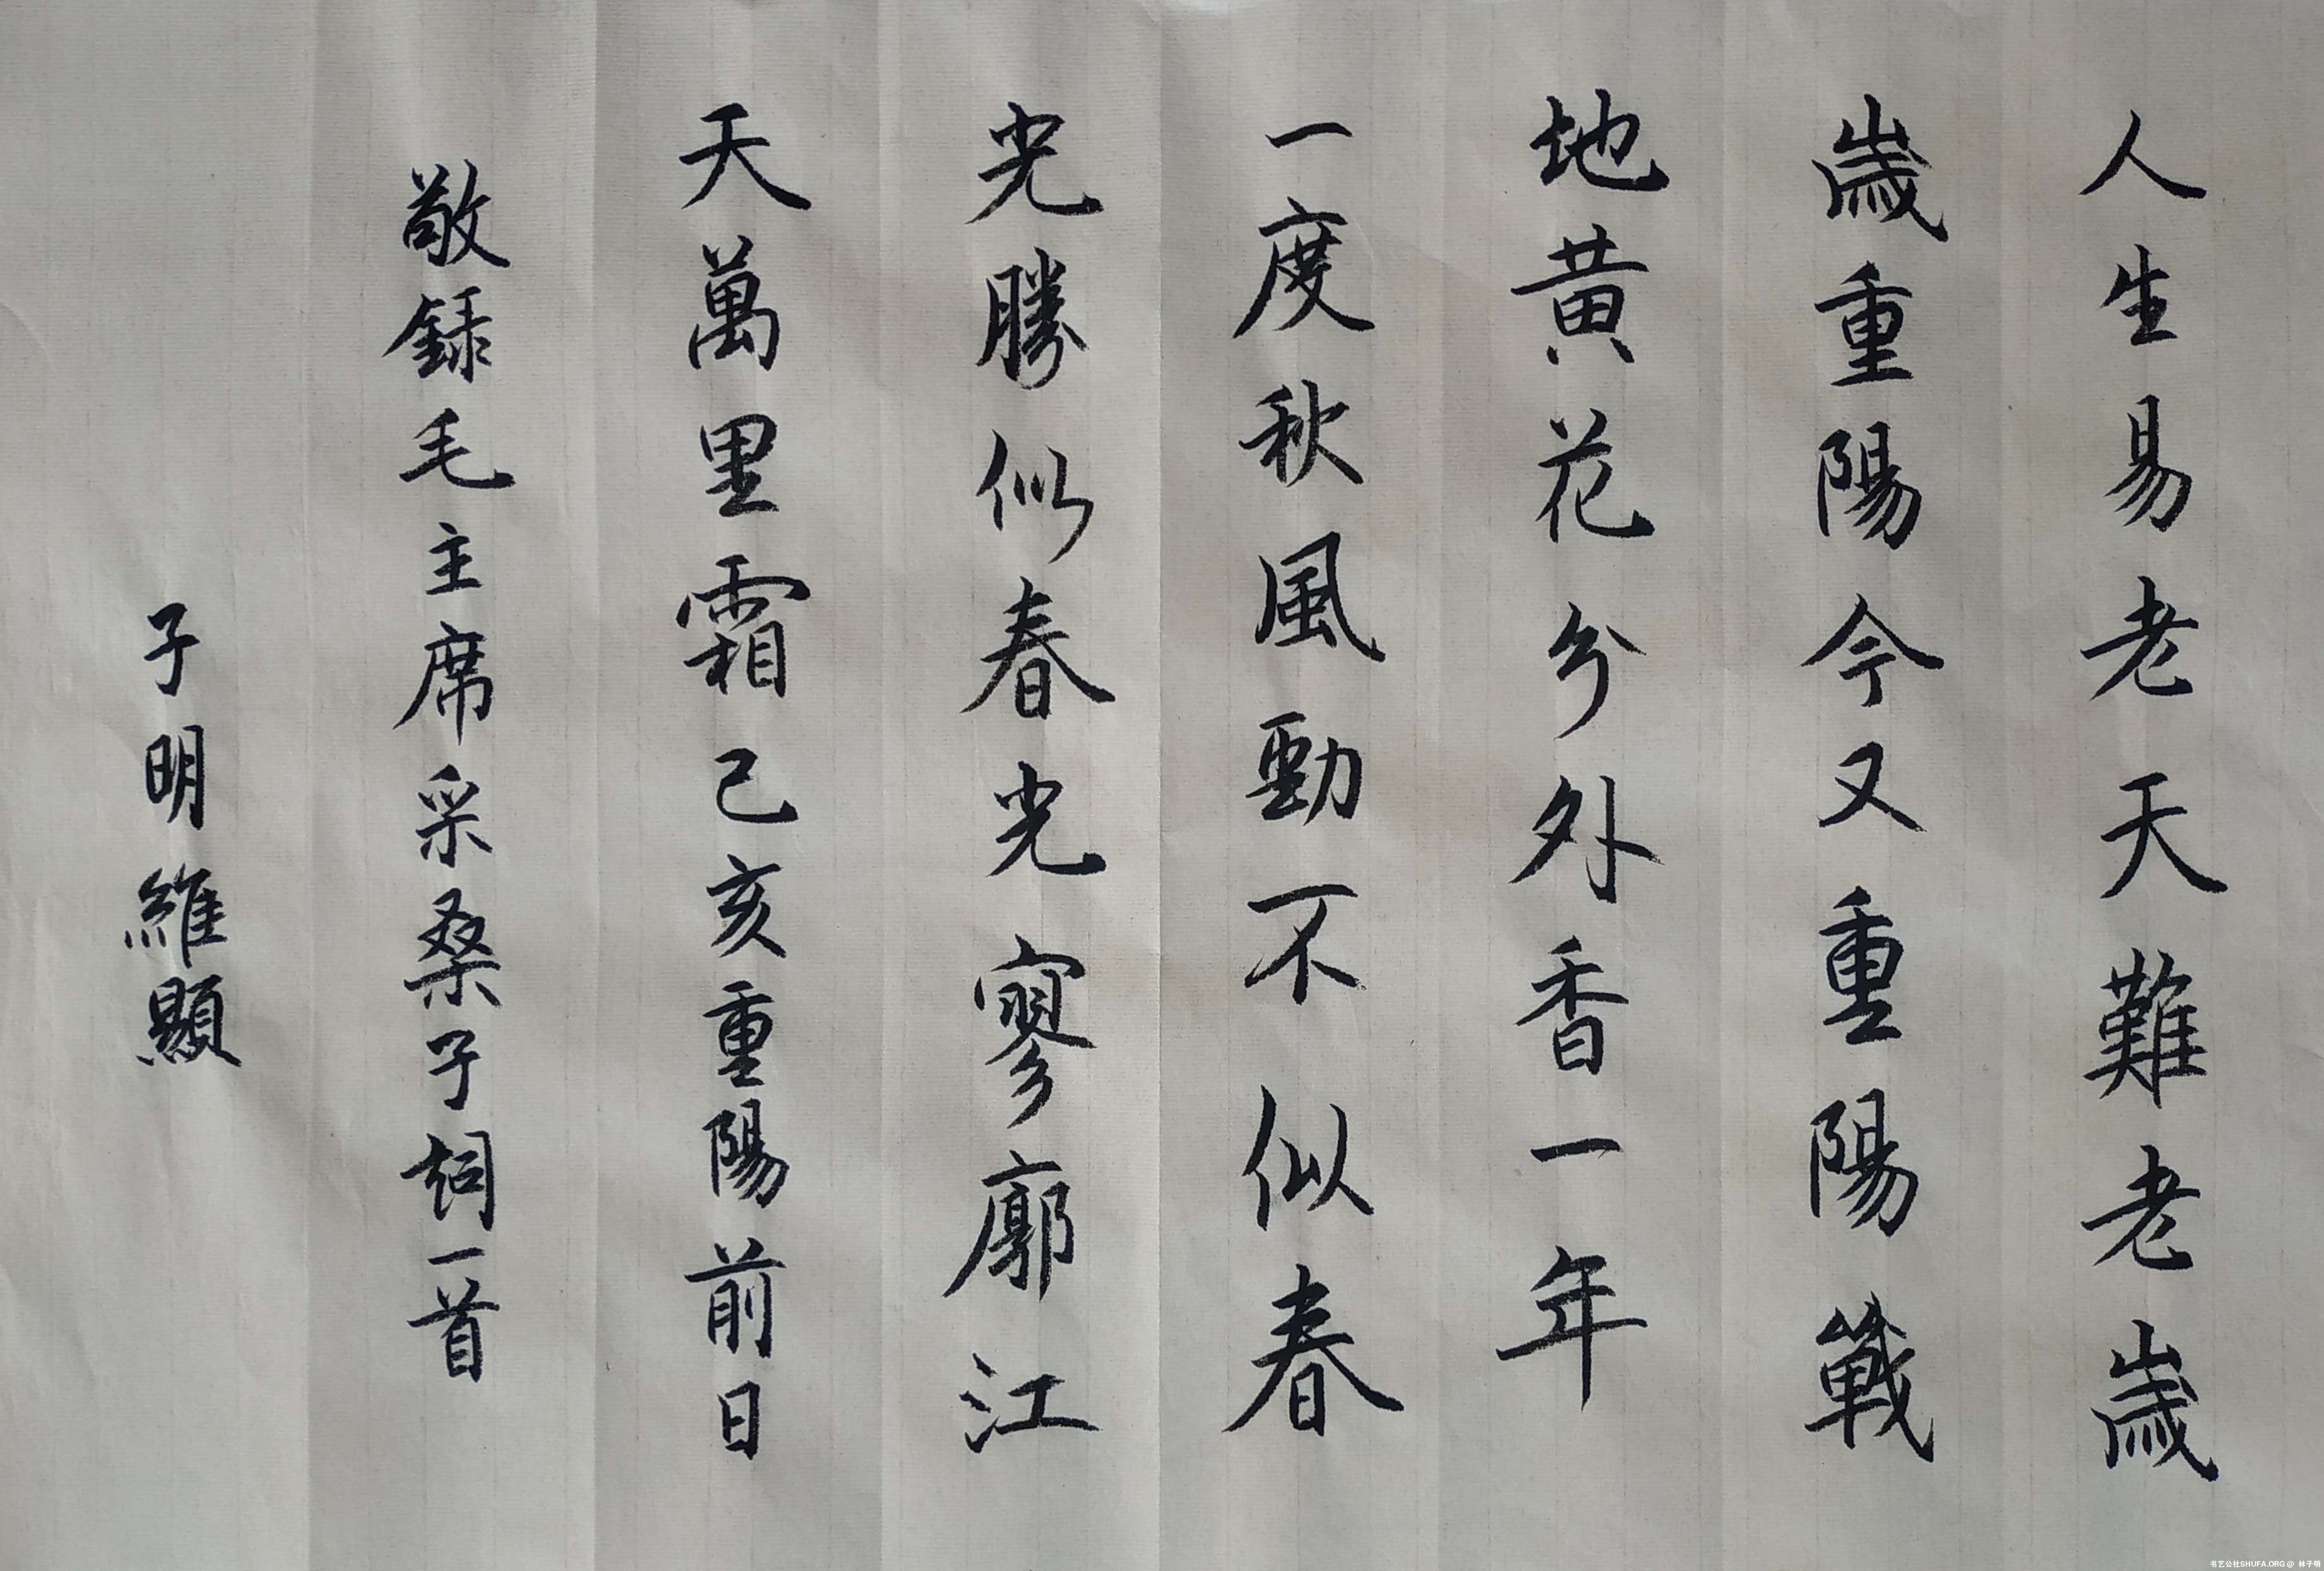 人生易老天難老歲
歲重陽今又重陽戰
地黃花分外香一年
一度秋風勁不似春
光勝似春光寥廓江
天萬里霜己亥重陽前日
敬録毛主席采桑子詞一首
子明維顯
书艺公社SHUFA.ORG @ 林子明